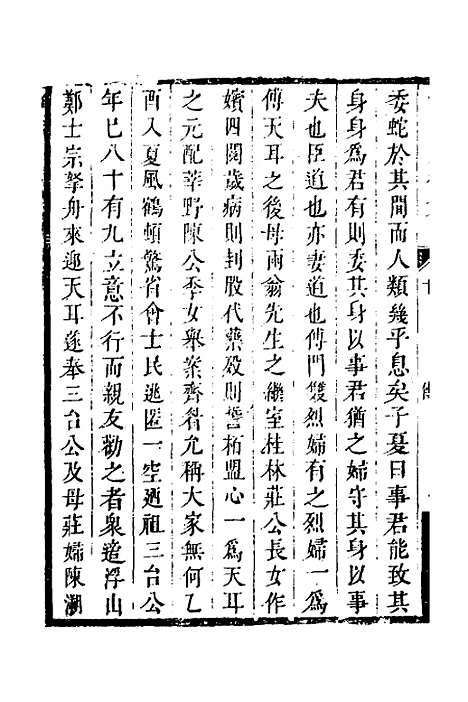 委蛇於其間而人類幾乎息矣子夏曰事君能致其
身身為君有則委其身以事君猶之婦守其身以事
夫也臣道也亦妻道也傅門雙烈婦有之烈婦一為
傅天耳之後母雨翁先生之繼室桂林莊公長女作
嬪四閱歲病則刲股代藥殁則誓栢盟心一為天耳
之元配莘野陳公季女舉案齊眉允稱大家無何乙
酉入夏風鶴頓驚省會士民逃匿一空廼祖三台公
年已八十有九立意不行而親友勸之者衆適浮山
鄭士宗拏舟來迎天耳遂奉三台公及母莊孀陳潮